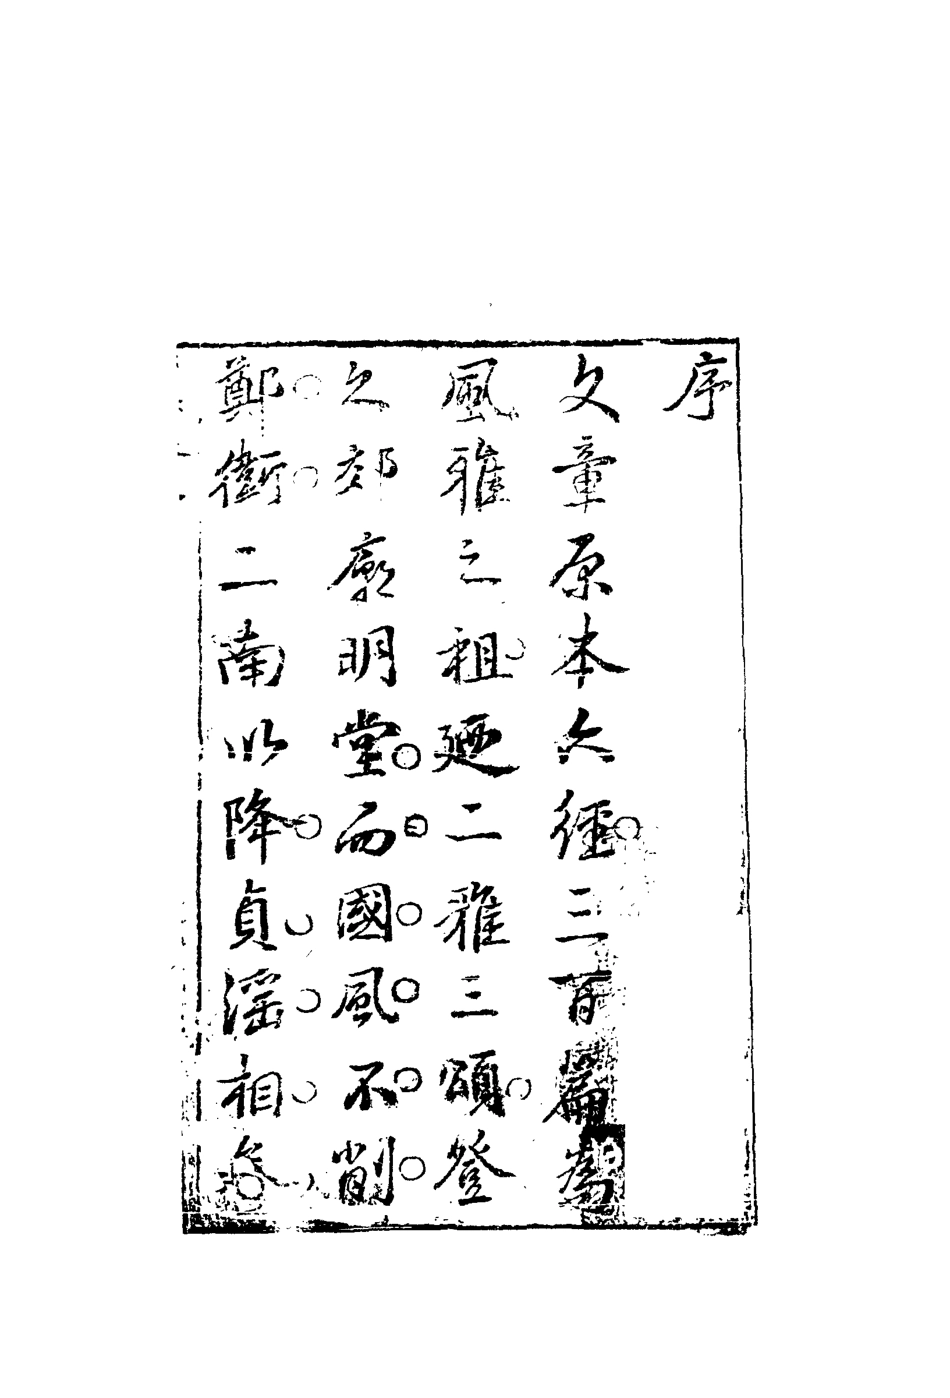 序
文章原本六經三百篇為
風雅之祖廼二雅三頌登
之郊廟明堂而國風不削
鄭衛二南以降貞淫相參